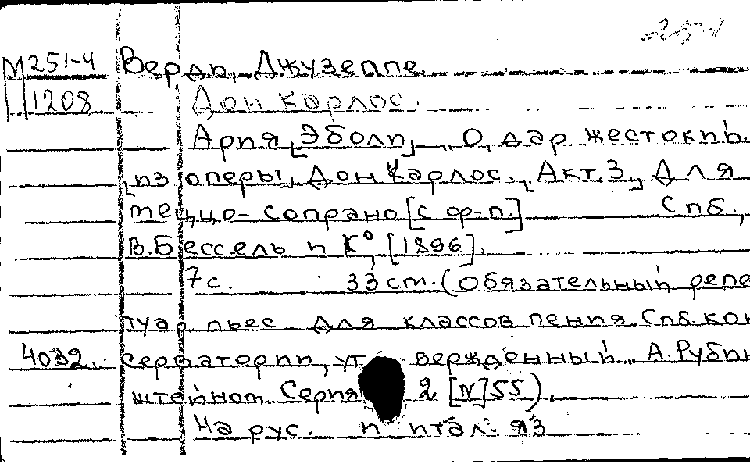 251-4
М251-4 Верди, Джузеппе.
1208 Дон Карлос.
Ария [Эболи] „О, дар жестокий"
[из оперы „Дон Карлос". Акт. 3.] Для
меццо-сопрано [с ф-п.] Спб.,
В. Бессель и К°, [1896].
7 с. 33 cm. (Обязательный репер
туар пьес для классов пения Спб. кон
4032. серватории, утвержденный А. Рубин
штейном. Серия 2 [N] 55).
На рус. и итал. яз